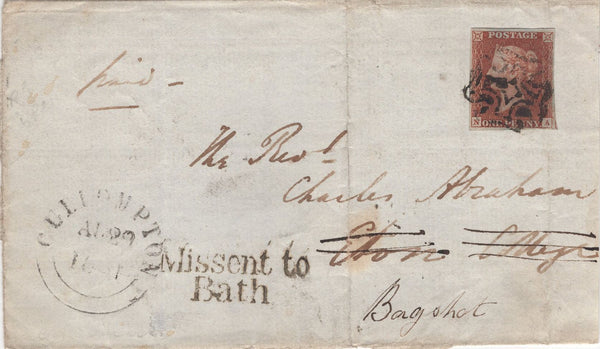 POSTAGE
N ONE PENNY A
Paid
The Revd.
Charles Abraham
Eton College
Bagshot
CULLOMPTON
Missent to
Bath